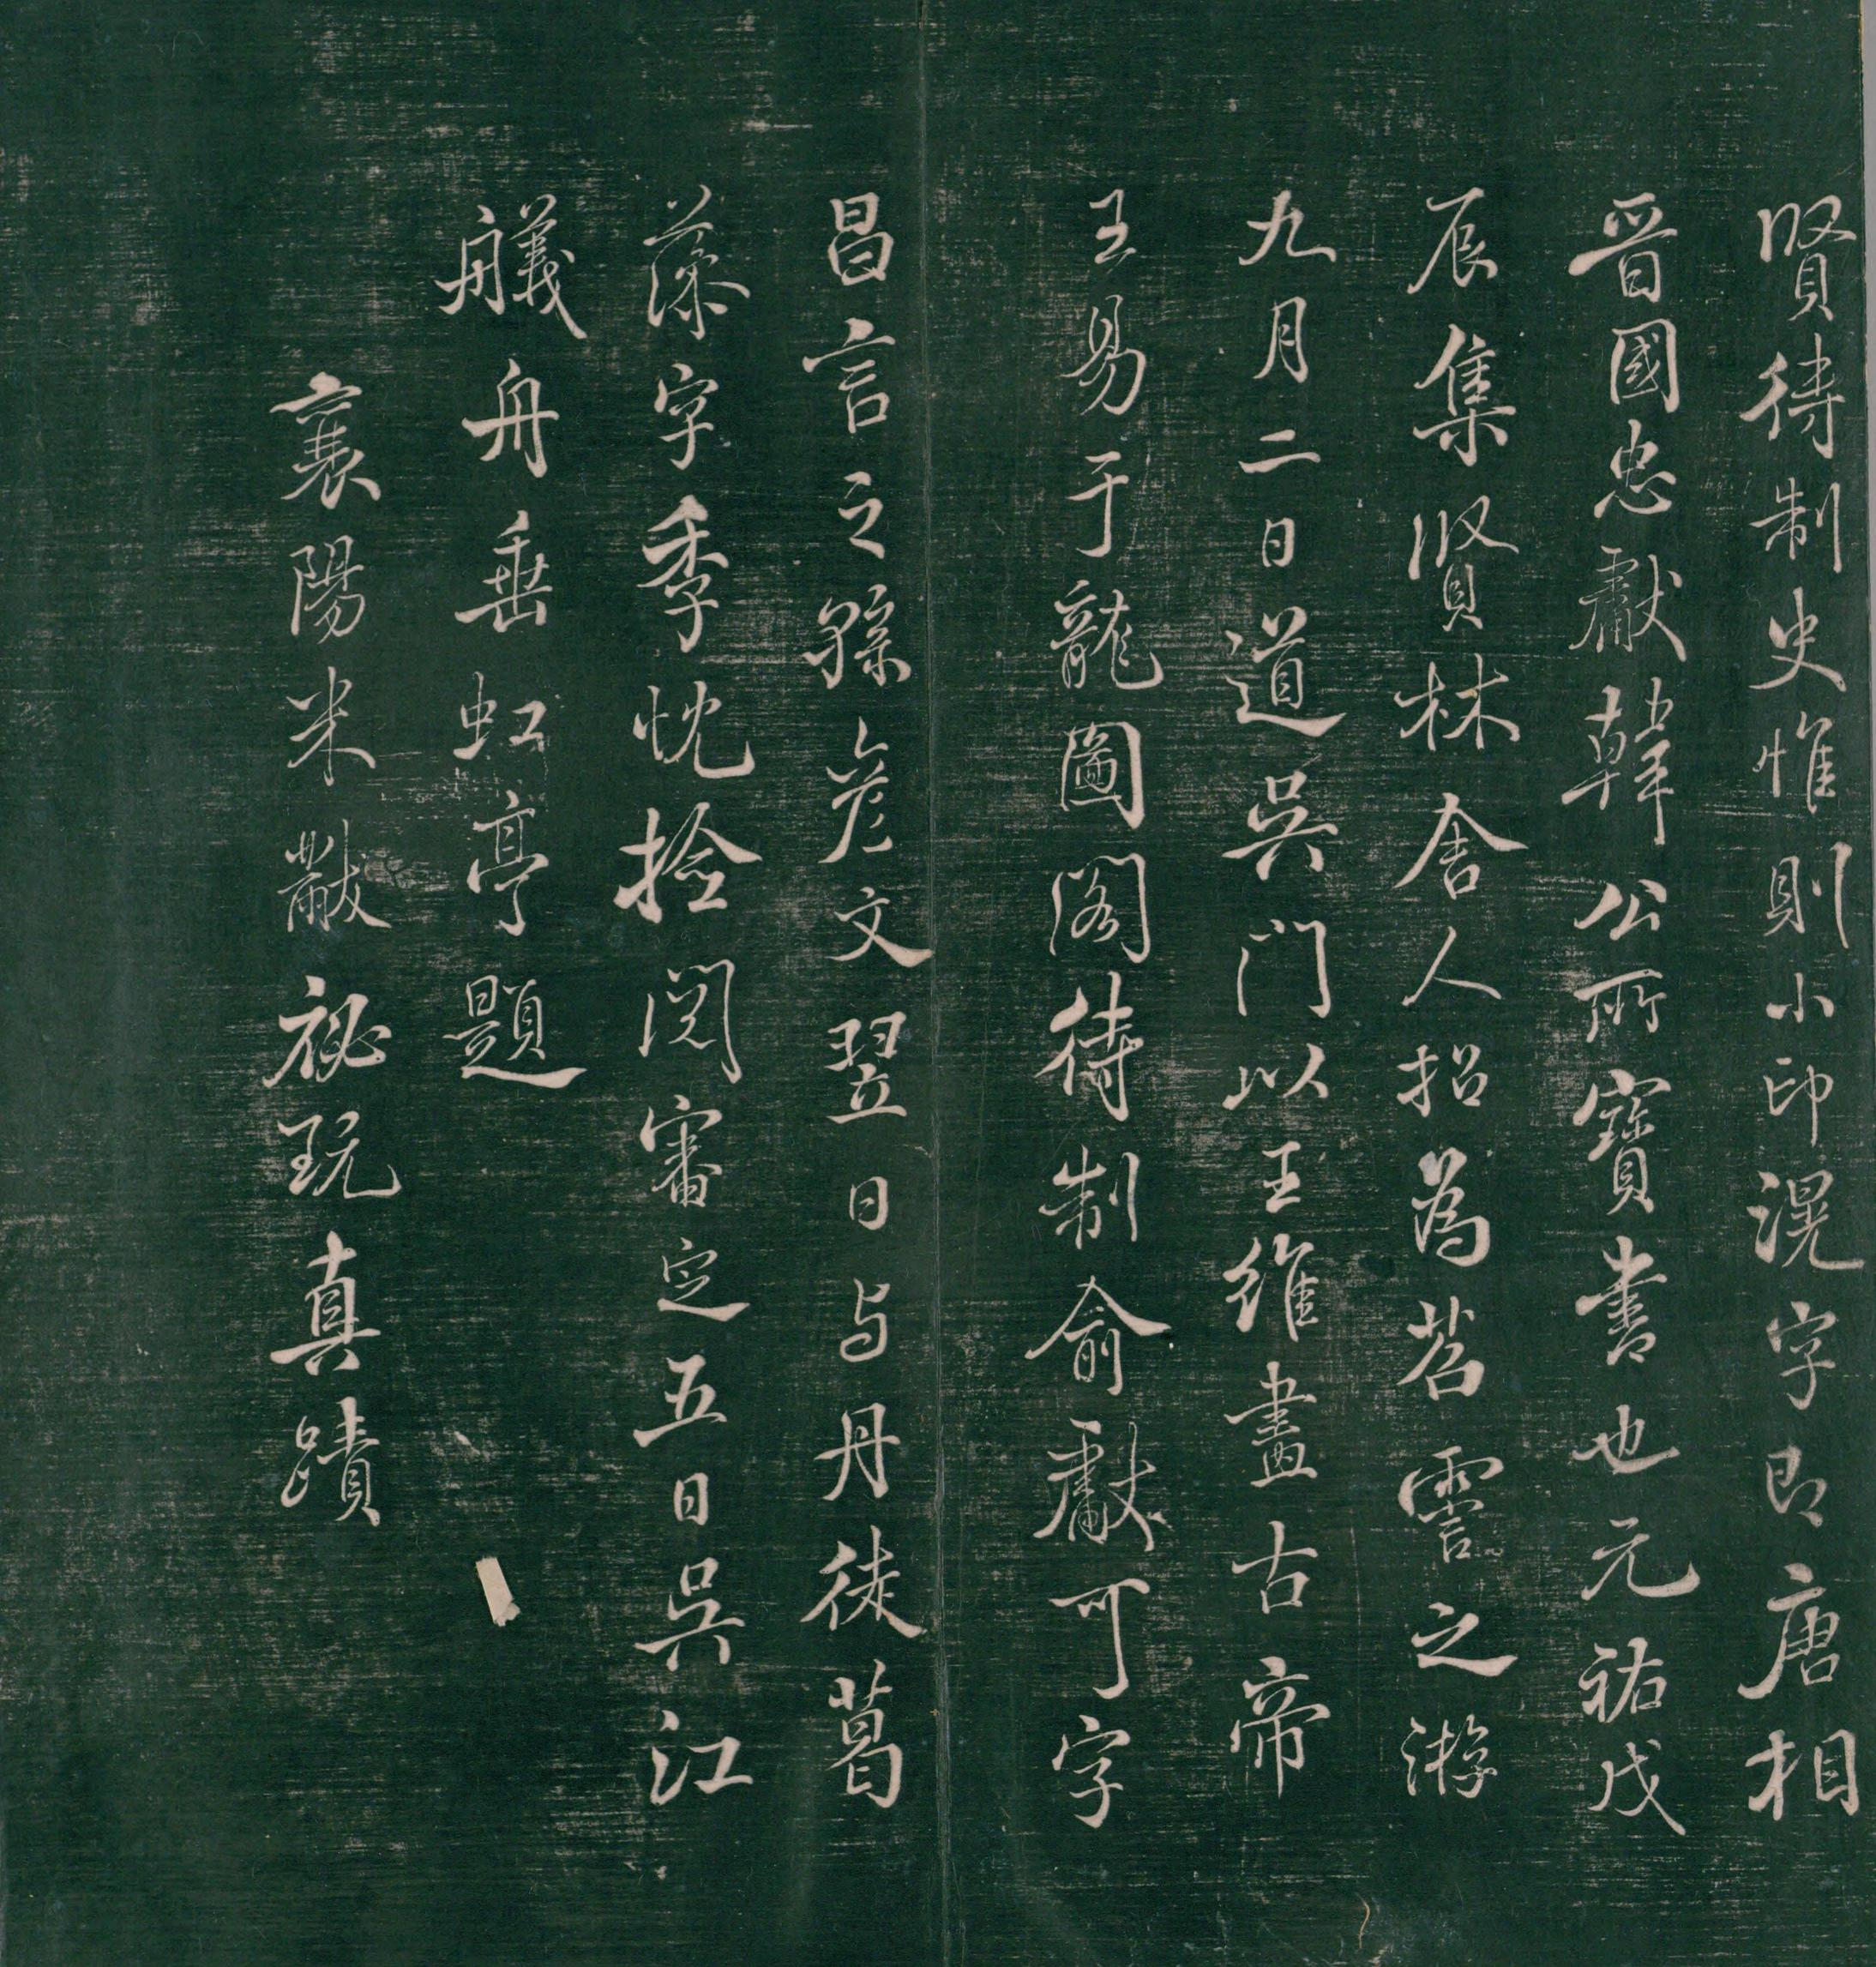 賢待制史惟則小印滉字即唐相
晉國忠獻韓公所寶書也元祐戊
辰集賢林舍人招為苕霅之游
九月二日道吳門以王維畫古帝
王易于龍圖閣待制俞獻可字
昌言之孫彥文翌日与丹徒葛
藻字季忱撿閱審定五日吳江
艤舟垂虹亭題
襄陽米黻祕玩真蹟